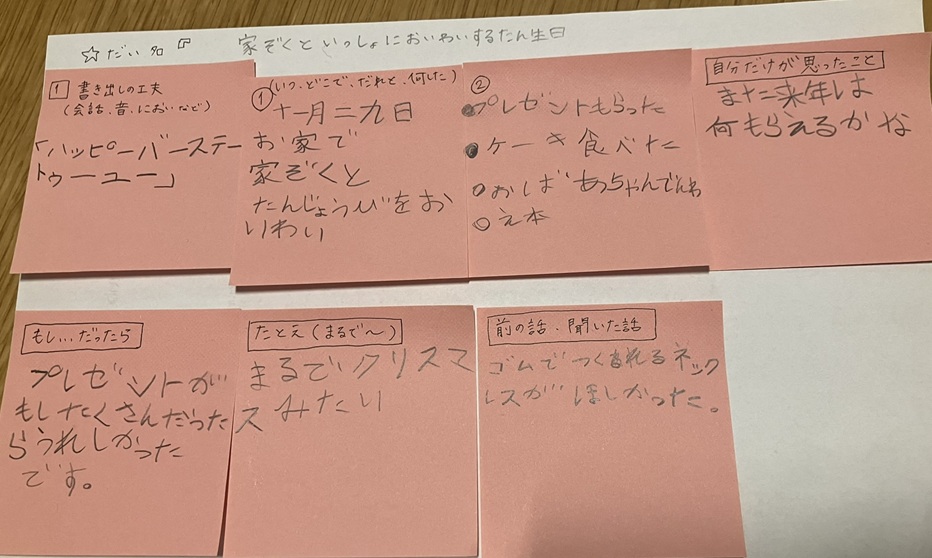 ☆だい名『 家ぞくといっしょにおいわいするたん生日
1 書き出しの工夫
(会話、音、においなど)
「ハッピーバーステー
トゥーユー」
① (いつ、どこで、だれと、何した)
十一月二九日
お家で
家ぞくと
たんじょうびをお
いわい
②
●プレゼントもらった
●ケーキ食べた
○おばあちゃんでんわ
○え本
自分だけが思ったこと
また来年は
何もらえるかな
もし…だったら
プレゼントが
もしたくさんだった
らうれしかった
です。
たとえ(まるで〜)
まるでクリスマ
スみたい
前の話、聞いた話
ゴムでつくれるネック
レスがほしかった。